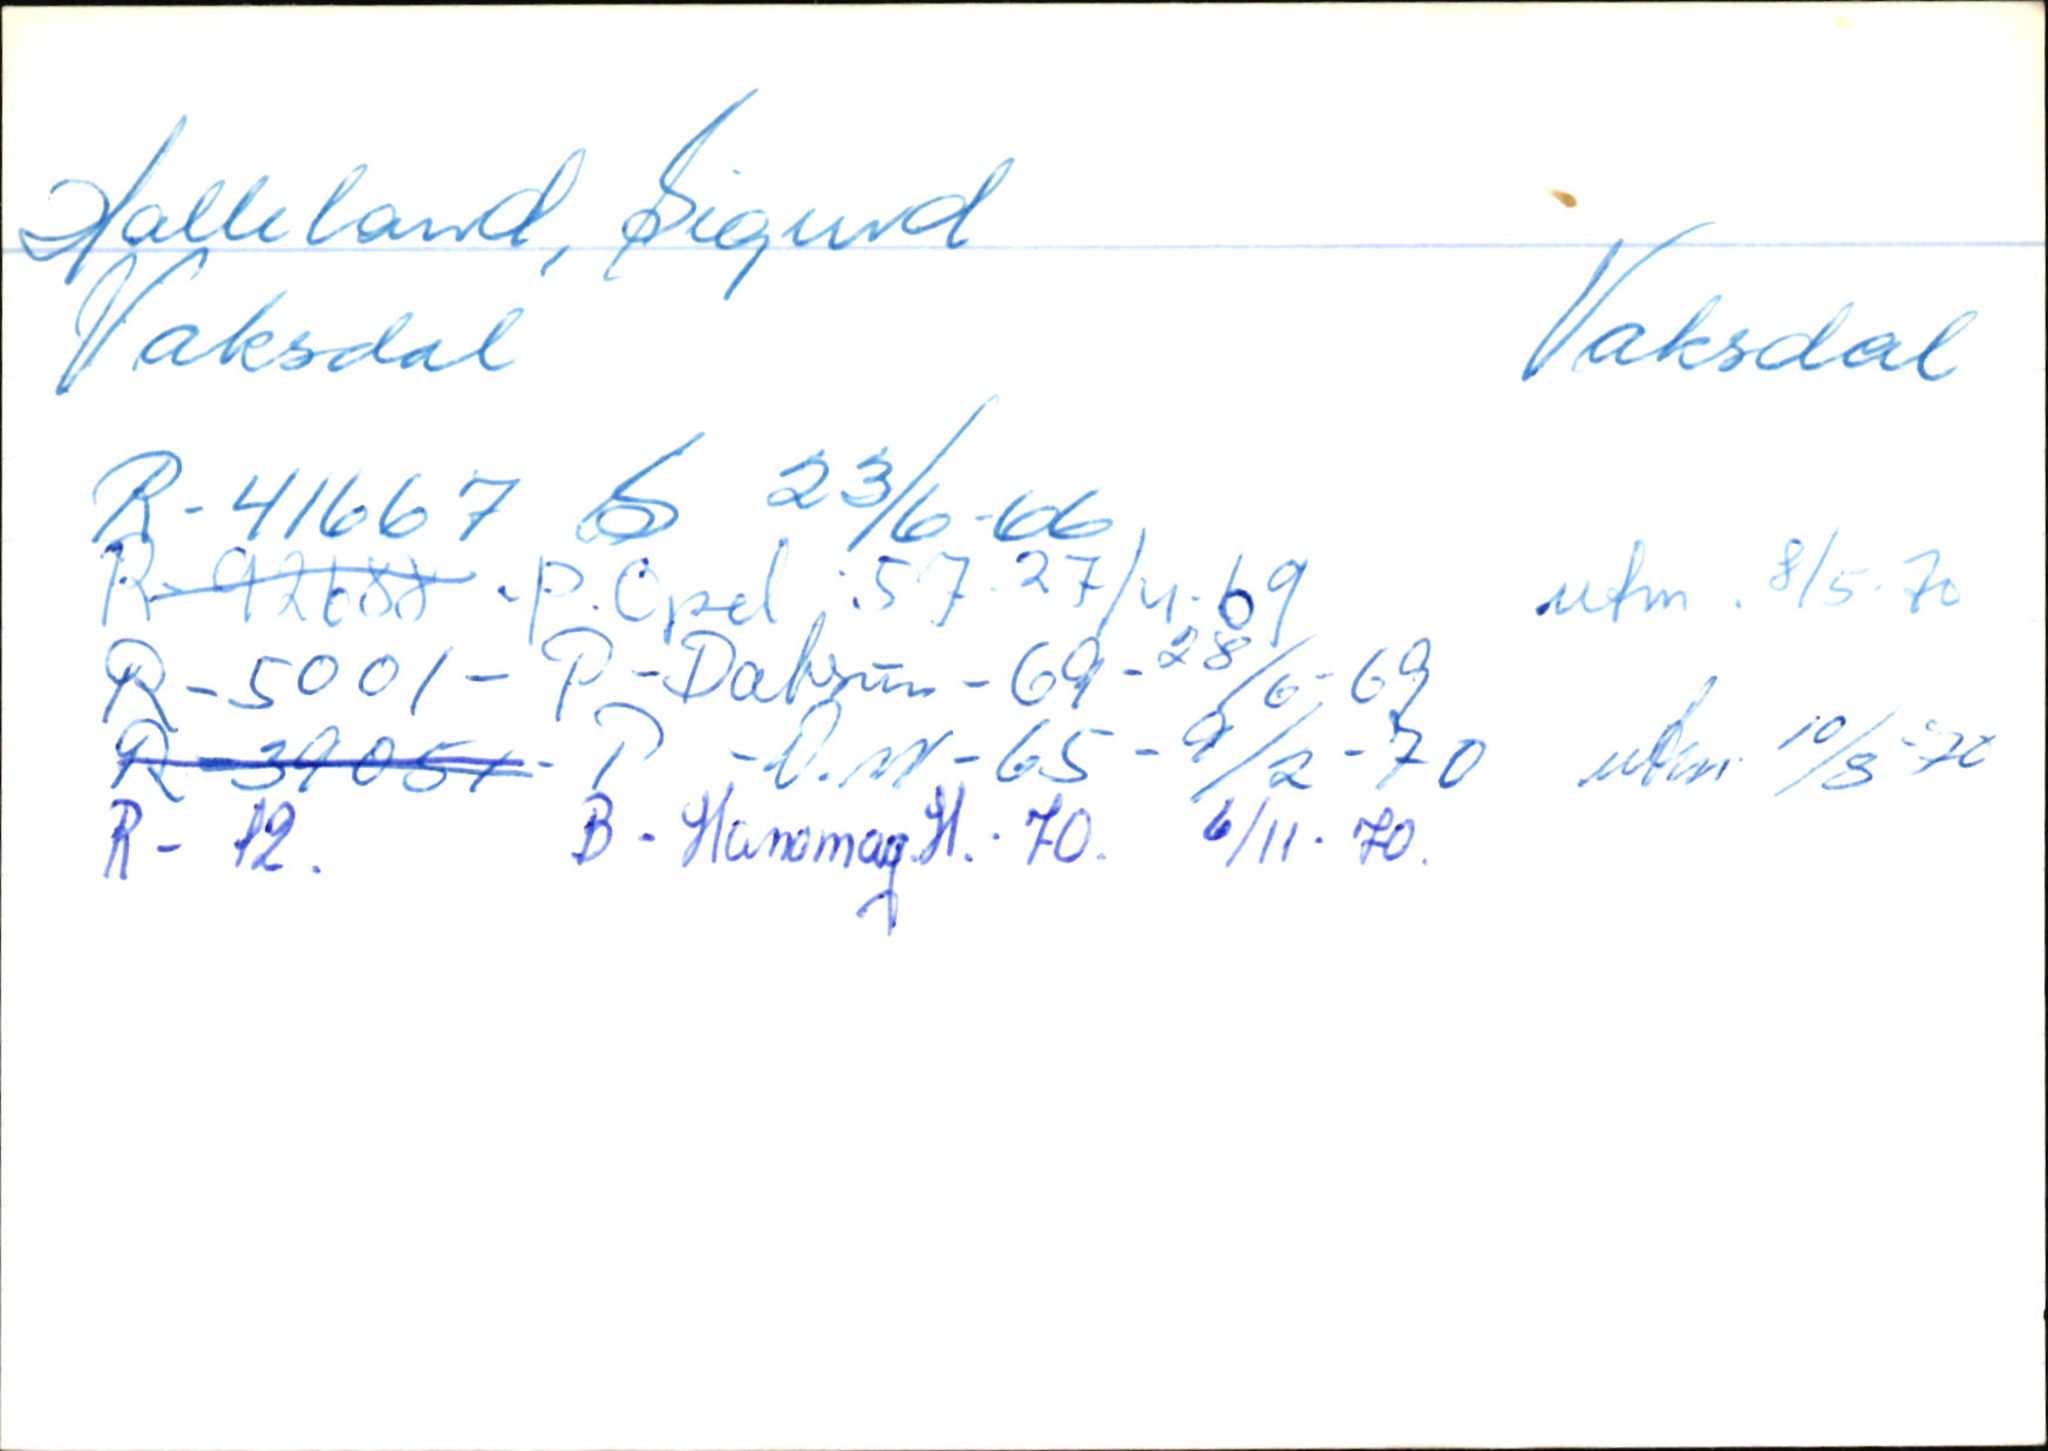 Halleland, Sigurd
Vaksdal Vaksdal
R-41667 23/6-66
R-92688 - P. Opel : 57. 27/4.69 utm. 8/5-70
R-5001 - P - Datsun - 69 - 28/6-69
R-39051 - P - V.W - 65 - 9/2-70 utm. 10/3-70
R- 12. B - Hanomag H. - 70. 6/11 - 70.